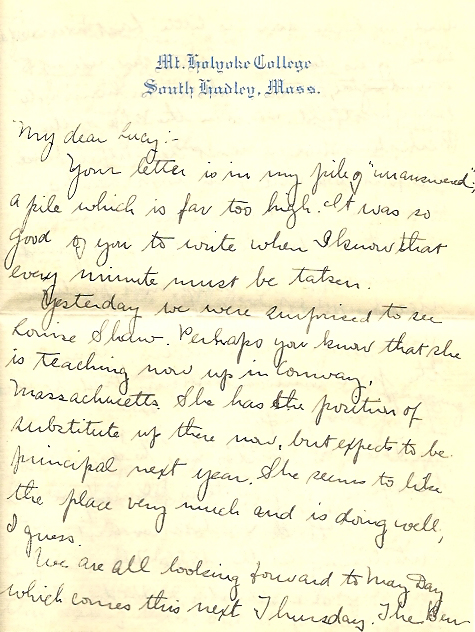 Mt. Holyoke College
South Hadley, Mass.
My dear Lucy:-
Your letter is in my pile of "unanswered",
a pile which is far too high. It was so
good of you to write when I know that
every minute must be taken.
Yesterday we were surprised to see
Louise Shaw. Perhaps you know that she
is teaching now up in Conway,
Massachusetts. She has the position of
substitute up there now, but expects to be
principal next year. She seems to like
the place very much and is doing well,
I guess.
We are all looking forward to May Day
which comes this next Thursday. The